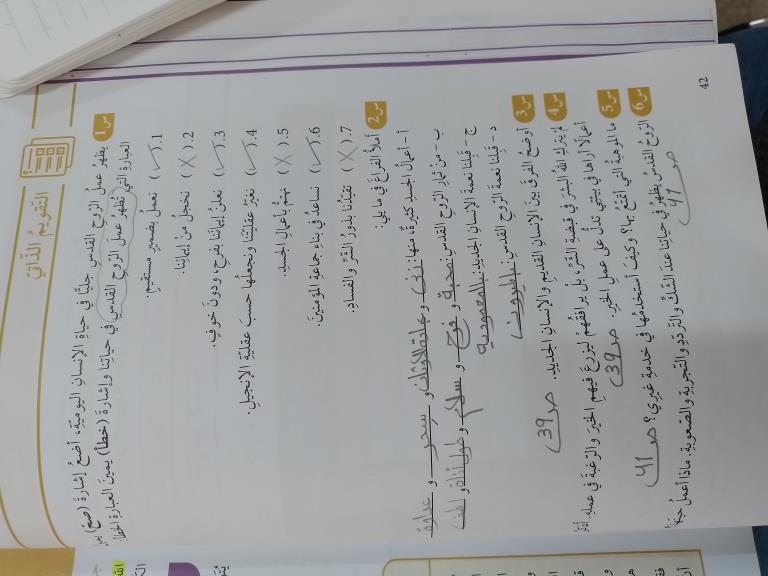 التقويم الذاتي
س1 يظهر عمل الروح القدس جليًّا في حياة الإنسان اليوميّة، أضع إشارة (صح)
العبارة التي تُظهر عمل الروح القدس في حياتنا وإشارة (خطأ) يمين العبارة الخطأ
1. (✓) نعمل بضمير مستقيم.
2. (X) نخجل من إيماننا.
3. (✓) نعلن إيماننا بفرح، ودون خوف.
4. (✓) نغيّر عقليّتنا ونجعلها حسب عقليّة الإنجيل.
5. (X) نهتمّ بأعمال الجسد.
6. (✓) نساعد في بناء جماعة المؤمنين.
7. (X) تقيّدنا بذور الشرّ والفساد.
س2 أملأ الفراغ في ما يلي:
أ - أعمال الجسد كثيرة، منها: زنى و عبادة الأوثان و سحر و عداوة
ب - من ثمار الروح القدس: محبة و فرح و سلام و طول أناة و لطف
ج - قبلنا نعمة الإنسان الجديد: بالمعمودية
د - قبلنا نعمة الروح القدس: بالميرون
س3 أوضح الفرق بين الإنسان القديم والإنسان الجديد. ص 39
س4 لم يترك الله البشر في قبضة الشرّ، بل يرافقهم ليزرع فيهم الخير والرغبة في عمله. أذكر
أعمالًا أراها في بيتي تدلّ على عمل الخير. ص 39
س5 ما الموهبة التي أتمتّع بها؟ وكيف أستخدمها في خدمة غيري؟ ص 41
س6 الروح القدس يظهر في حياتنا عند الشكّ والتردّد والتجربة والصعوبة. ماذا أعمل حينها
ص 41
42